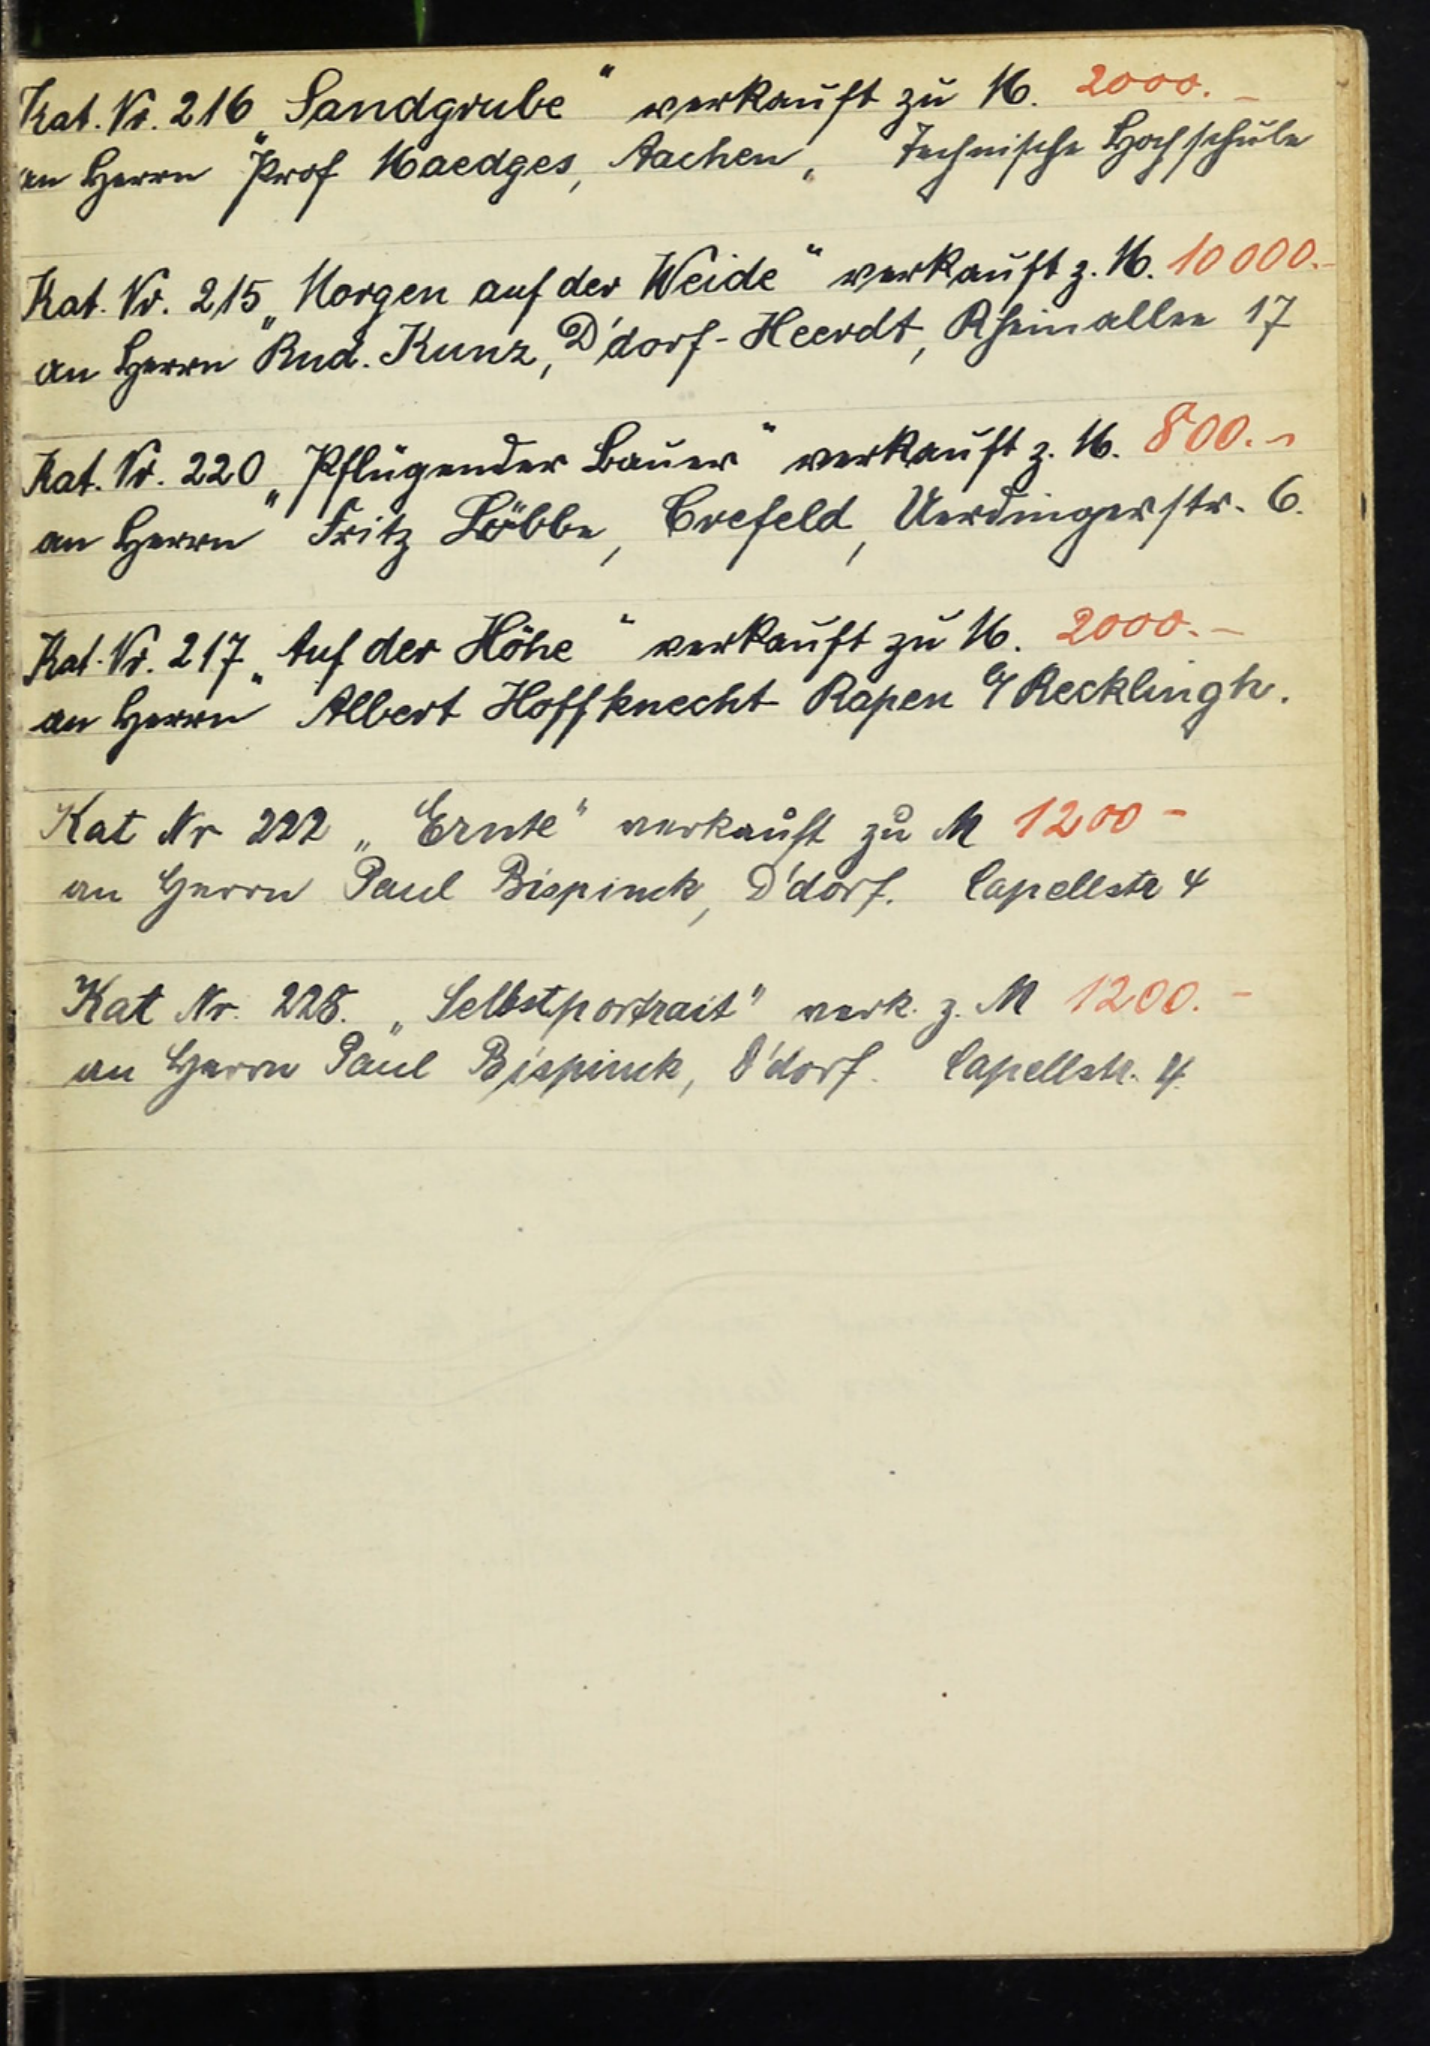 Kat. Nr. 216 „Sandgrube" verkauft zu M. 2000.–
an Herrn Prof Maedges, Aachen, Technische Hochschule
Kat. Nr. 215 „Morgen auf der Weide" verkauft z. M. 10000.–
an Herrn Rud. Kunz, D'dorf-Heerdt, Rheinallee 17
Kat. Nr. 220 „Pflügender Bauer" verkauft z. M. 800.–
an Herrn Fritz Löbbe, Crefeld, Uerdingerstr. 6.
Kat. Nr. 217 „Auf der Höhe" verkauft zu M. 2000.–
an Herrn Albert Hoffknecht Rapen b/ Recklingh.
Kat Nr 222 „Ernte" verkauft zu M 1200 –
an Herrn Paul Bispinck, D'dorf. Capellstr 4
Kat Nr. 228. „Selbstportrait" verk. z. M 1200.–
an Herrn Paul Bispinck, D'dorf. Capellstr. 4.